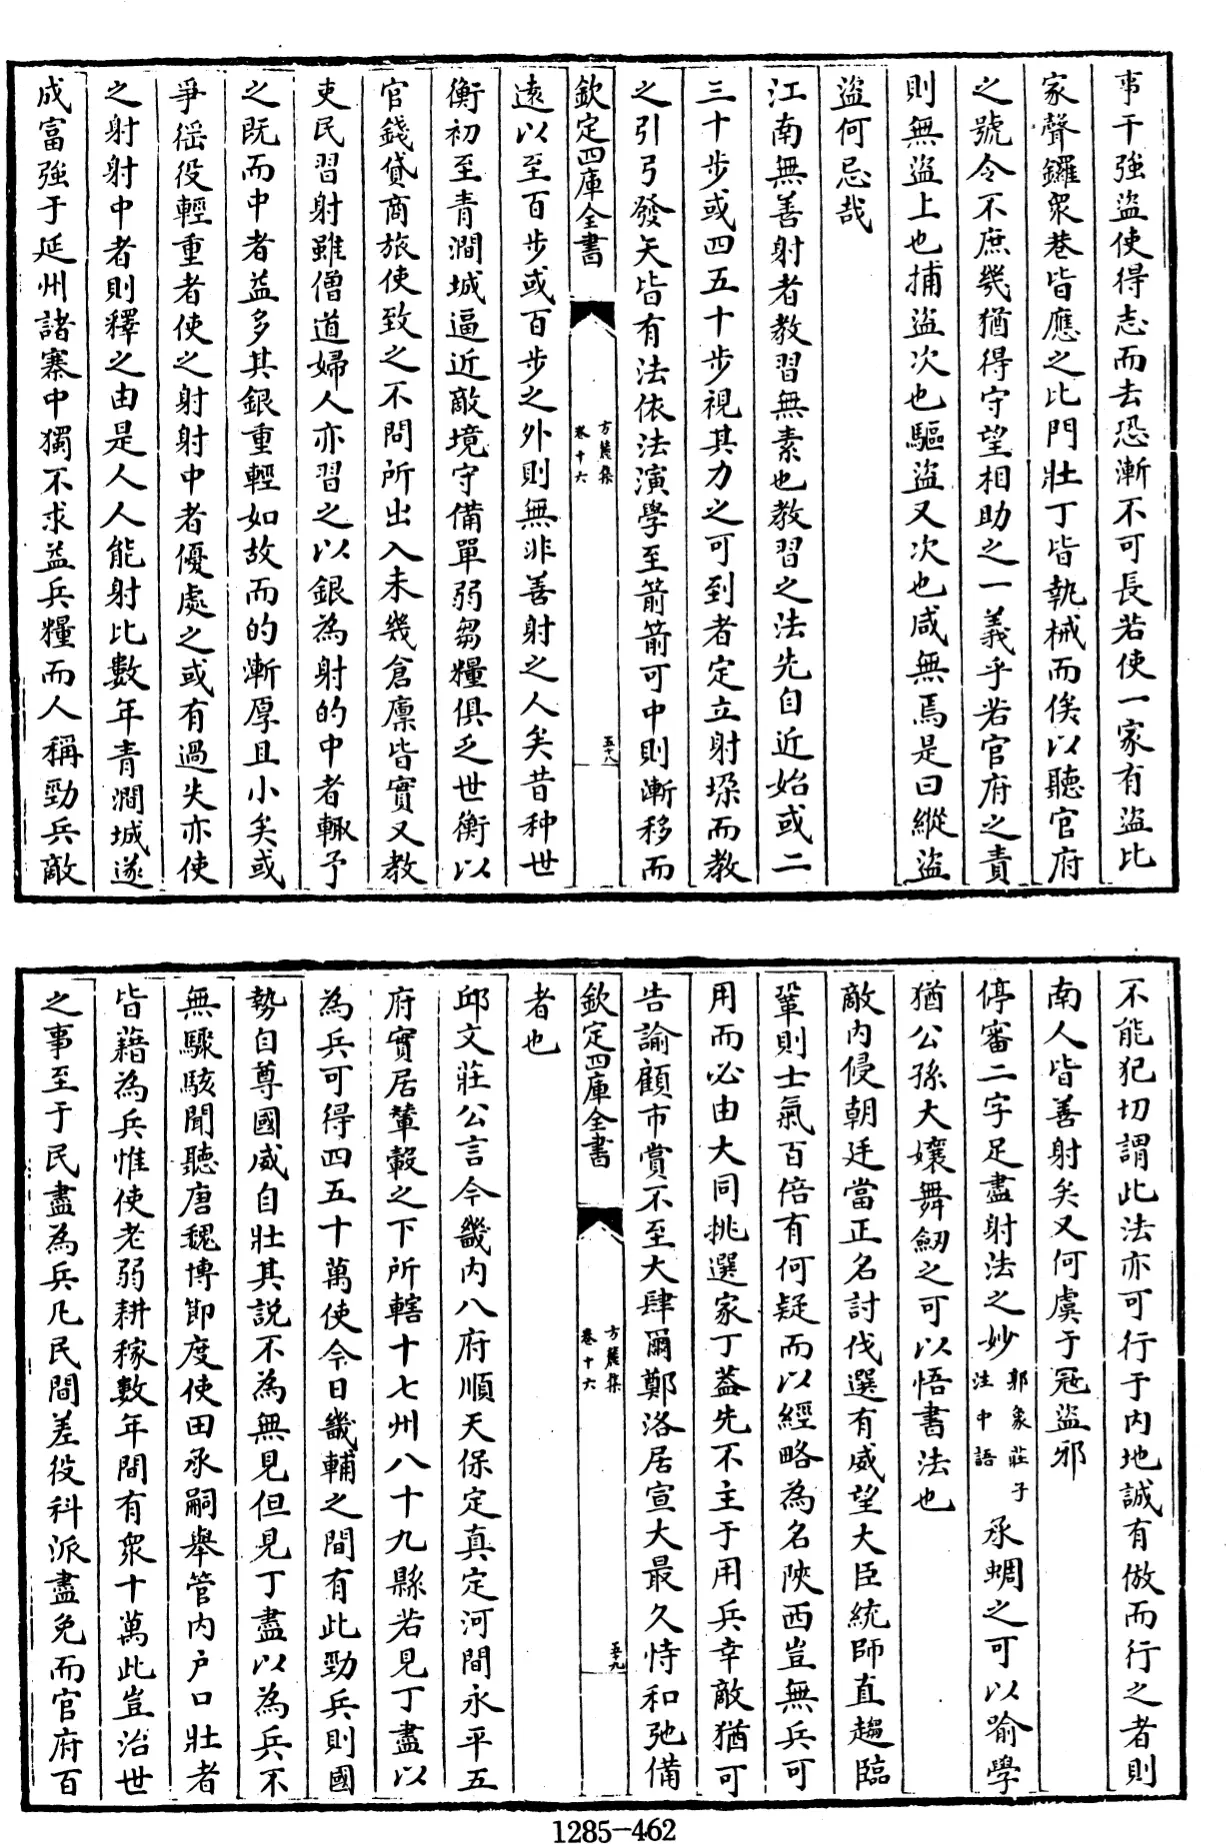 事干強盜使得志而去恐漸不可長若使一家有盜比
家聲鑼衆巷皆應之比門壯丁皆執械而俟以聽官府
之號令不庶幾猶得守望相助之一義乎若官府之責
則無盜上也捕盜次也驅盜又次也咸無焉是曰縱盜
盜何忌哉
江南無善射者教習無素也教習之法先自近始或二
三十步或四五十步視其力之可到者定立射垜而教
之引弓發矢皆有法依法演學至箭箭可中則漸移而
欽定四庫全書
方麓集
卷十六
五十八
遠以至百步或百步之外則無非善射之人矣昔种世
衡初至青澗城逼近敵境守備單弱芻糧俱乏世衡以
官錢貸商旅使致之不問所出入未幾倉廪皆實又教
吏民習射雖僧道婦人亦習之以銀為射的中者輙予
之既而中者益多其銀重輕如故而的漸厚且小矣或
爭徭役輕重者使之射射中者優處之或有過失亦使
之射射中者則釋之由是人人能射比數年青澗城遂
成富強于延州諸寨中獨不求益兵糧而人稱勁兵敵
不能犯切謂此法亦可行于内地誠有倣而行之者則
南人皆善射矣又何虞于冦盜邪
停審二字足盡射法之妙郭象莊子注中語承蜩之可以喻學
猶公孫大孃舞劒之可以悟書法也
敵内侵朝廷當正名討伐選有威望大臣統師直趨臨
鞏則士氣百倍有何疑而以經略為名陜西豈無兵可
用而必由大同挑選家丁葢先不主于用兵幸敵猶可
告諭顧市賞不至大肆爾鄭洛居宣大最久恃和弛備
欽定四庫全書
方麓集
卷十六
五十九
者也
邱文莊公言今畿内八府順天保定真定河間永平五
府實居輦轂之下所轄十七州八十九縣若見丁盡以
為兵可得四五十萬使今日畿輔之間有此勁兵則國
勢自尊國威自壯其説不為無見但見丁盡以為兵不
無驟駭聞聽唐魏博節度使田承嗣舉管内户口壯者
皆藉為兵惟使老弱耕稼數年間有衆十萬此豈治世
之事至于民盡為兵凡民間差役科派盡免而官府百
1285-462